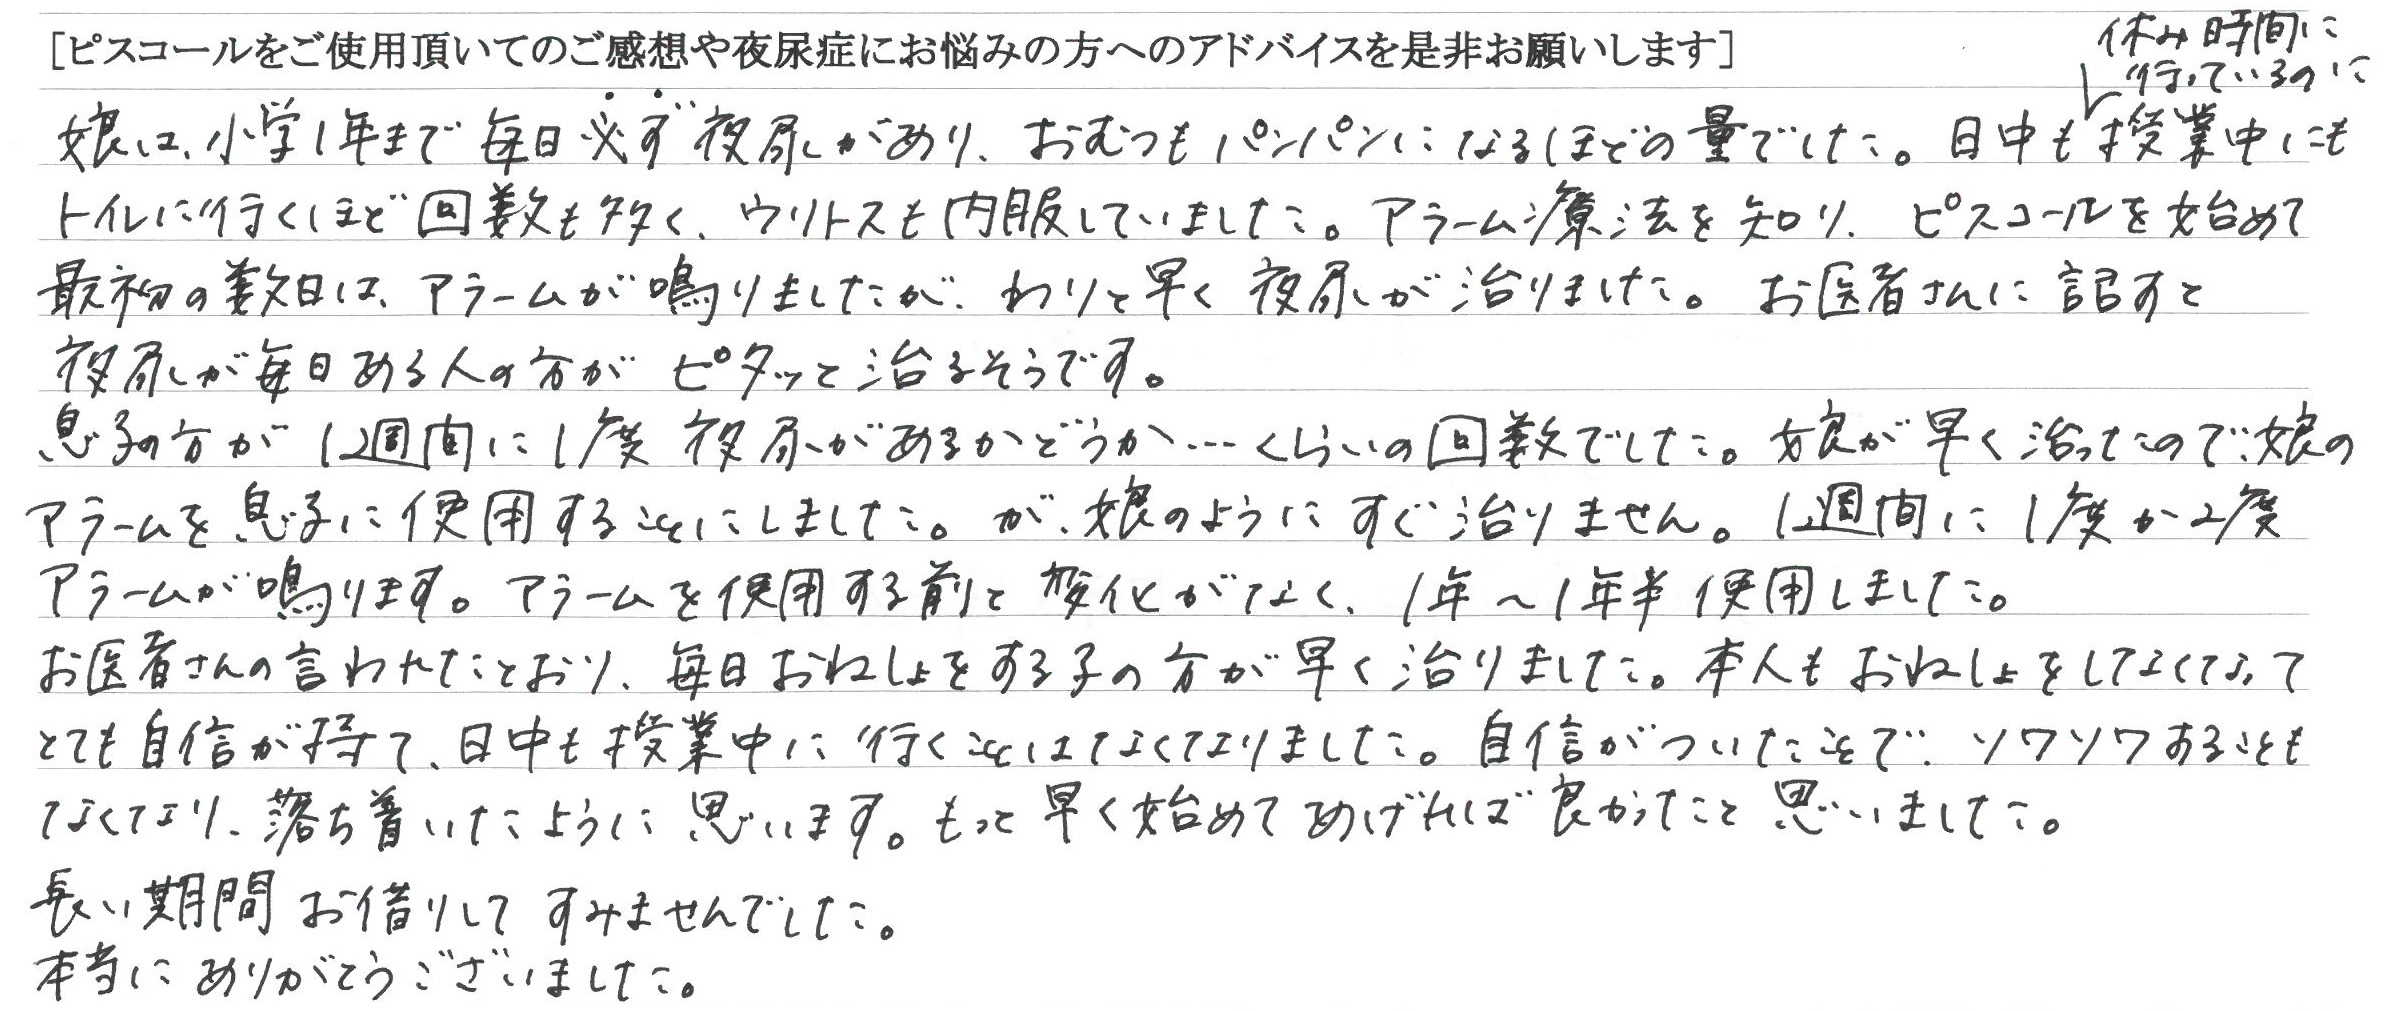 [ピスコールをご使用頂いてのご感想や夜尿症にお悩みの方へのアドバイスを是非お願いします]
休み時間に
行っているのに
娘は、小学1年まで毎日必ず夜尿があり、おむつもパンパンになるほどの量でした。日中も授業中にも
トイレに行くほど回数も多く、ウリトスも内服していました。アラーム療法を知り、ピスコールを始めて
最初の数日は、アラームが鳴りましたが、わりと早く夜尿が治りました。お医者さんに話すと
夜尿が毎日ある人の方がピタッと治るそうです。
息子の方が1週間に1度夜尿があるかどうか…くらいの回数でした。娘が早く治ったので、娘の
アラームを息子に使用することにしました。が、娘のようにすぐ治りません。1週間に1度か2度
アラームが鳴ります。アラームを使用する前と変化がなく、1年〜1年半使用しました。
お医者さんの言われたとおり、毎日おねしょをする子の方が早く治りました。本人もおねしょをしなくなって
とても自信が持て、日中も授業中に行くことはなくなりました。自信がついたことで、ソワソワすることも
なくなり、落ち着いたように思います。もっと早く始めてあげれば良かったと思いました。
長い期間お借りしてすみませんでした。
本当にありがとうございました。